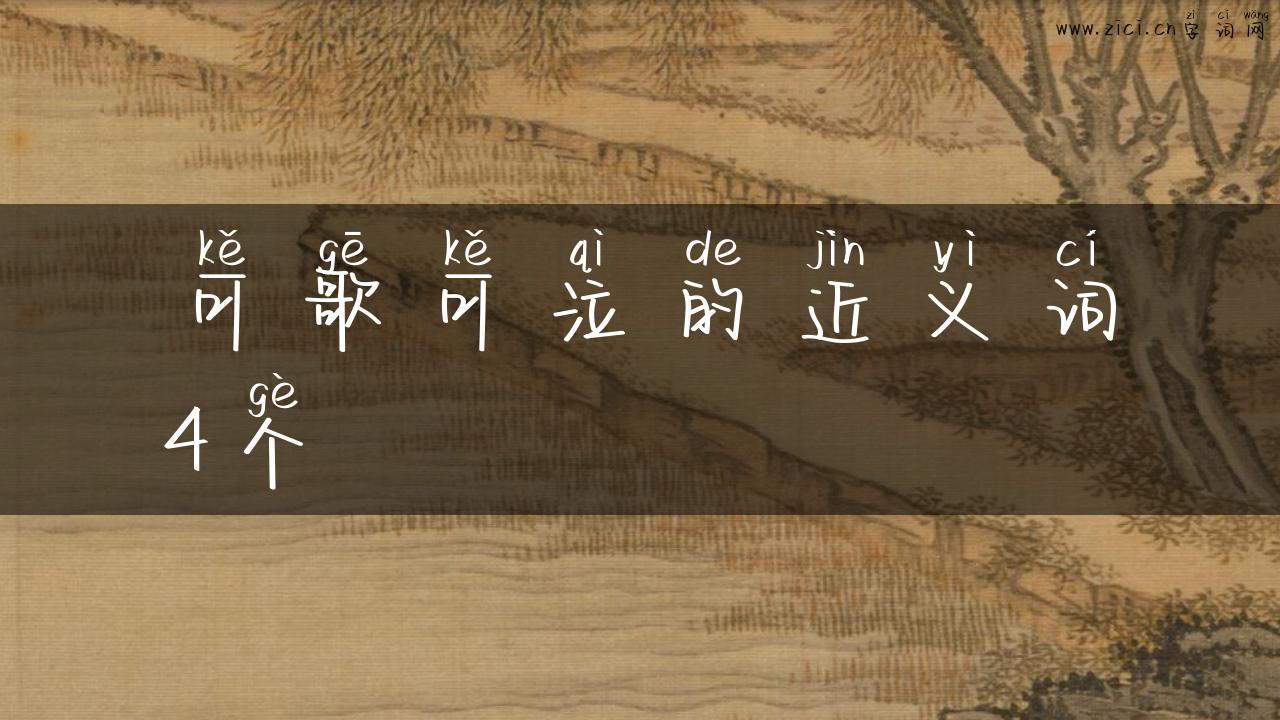 www.zici.cn字词网
zì cí wǎng
kě gē kě qì de jìn yì cí
可歌可泣的近义词
gè
4个